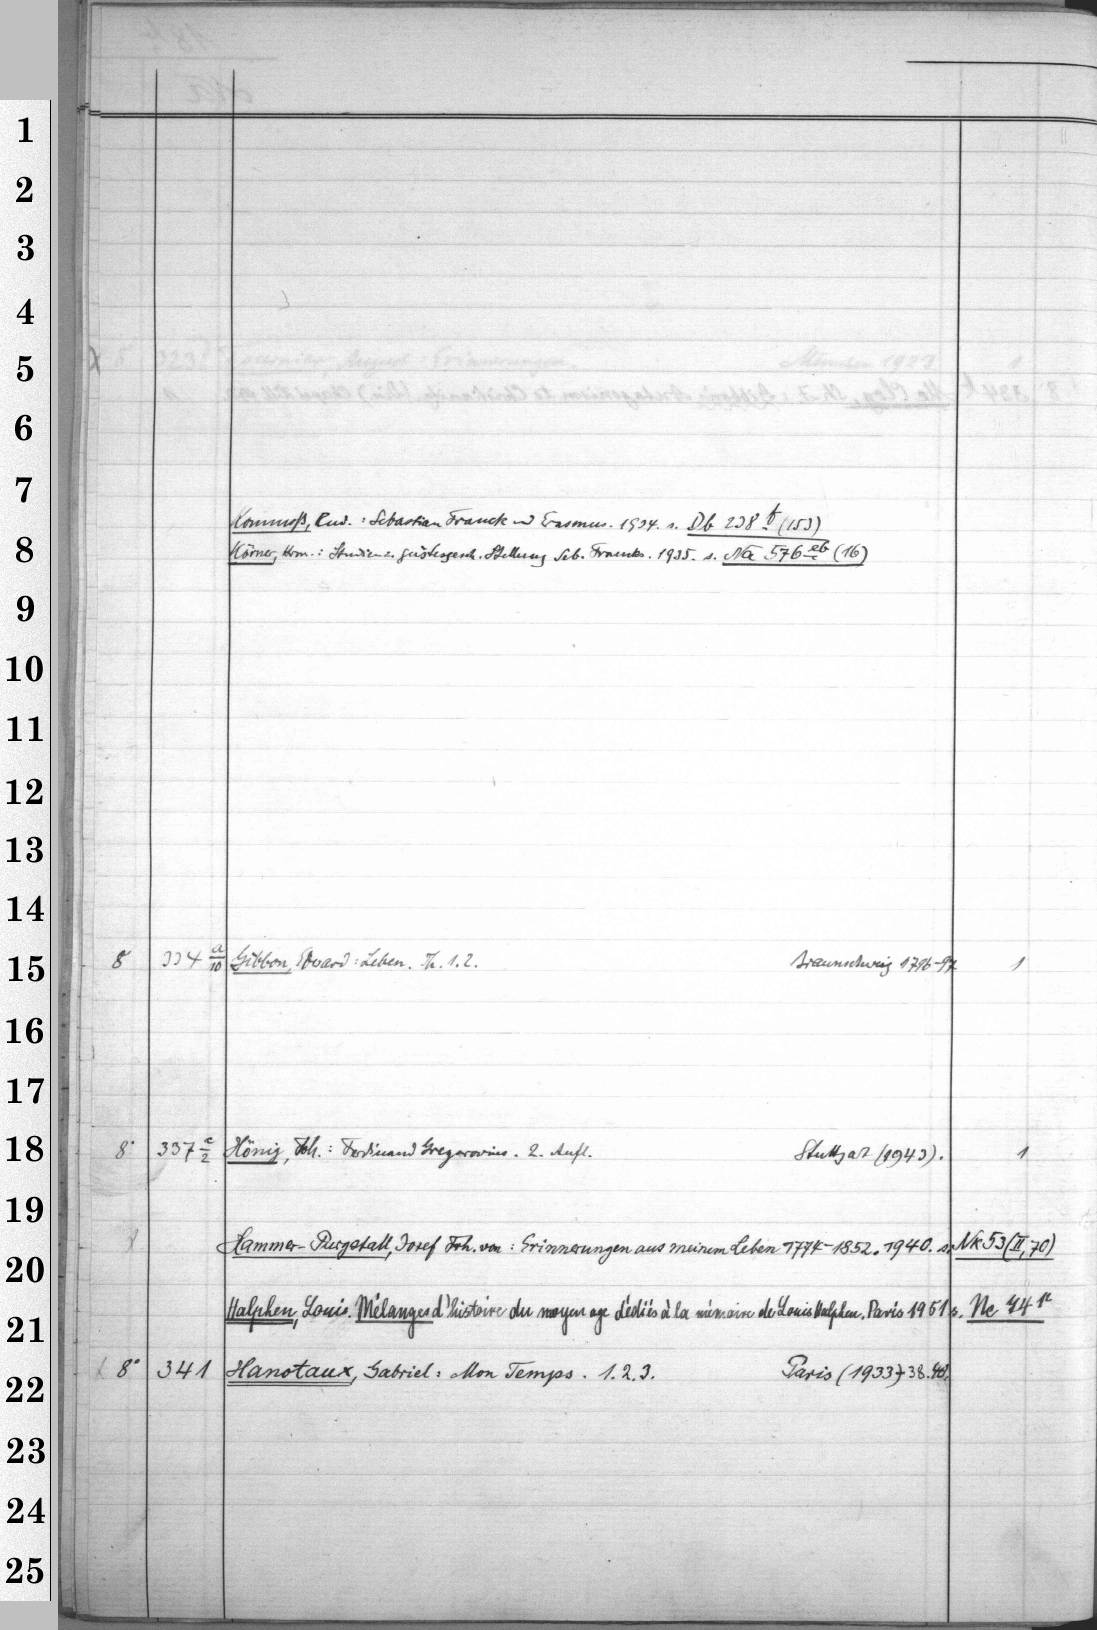 1
2
3
4
5
6
7
Kommoß, Rud. : Sebastian Franck u Erasmus. 1934. s. Db 238 t (153)
8
Körner, Hrm. : Studien z. geistesgesch. Stellung Seb. Francks. 1935. s. Na 576 eb (16)
9
10
11
12
13
14
15
8° 334 a/10 Gibbon, Edward : Leben. Th. 1.2. Braunschweig 1796-97 1
16
17
18
8° 337 c/2 Hönig, Joh. : Ferdinand Gregorovius. 2. Aufl. Stuttgart (1943). 1
19
20
Hammer-Purgstall, Josef Joh. von : Erinnerungen aus meinem Leben 1774-1852. 1940. s. Nk 53 (II, 70)
21
Halphen, Louis. Mélanges d'histoire du moyen age dédiés à la mémoire de Louis Halphen. Paris 1951 s. Nc 44
22
8° 341 Hanotaux, Gabriel : Mon Temps. 1.2.3. Paris (1933)-38.40.
23
24
25